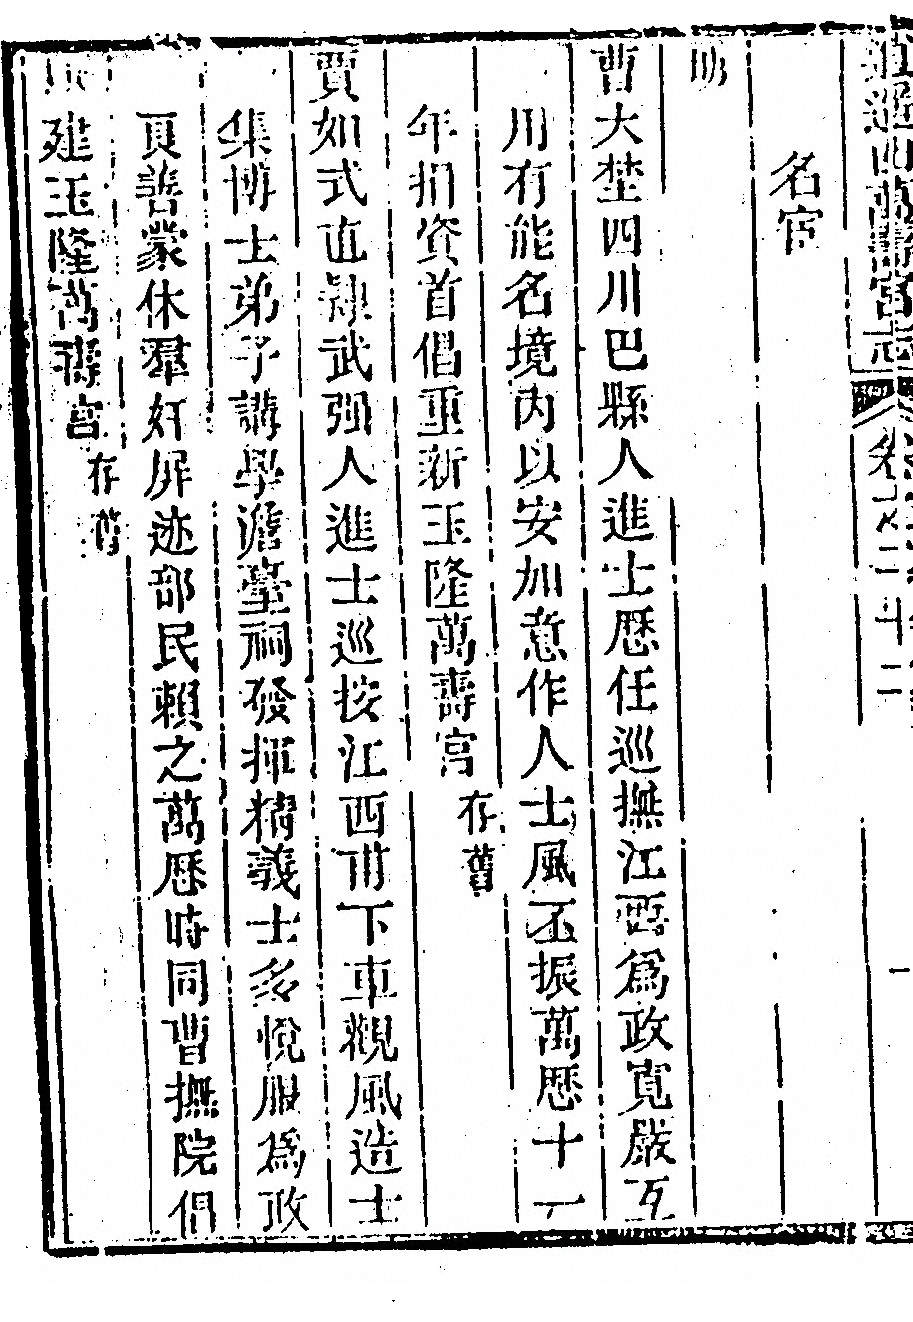 逍遙山萬壽宮志 卷之二十二 一
名宦
明
曹大埜四川巴縣人進士歷任巡撫江西為政寬嚴互
用有能名境內以安加意作人士風丕振萬歷十一
年捐資首倡重新玉隆萬壽宮存舊
賈如式直隸武强人進士巡按江西甫下車觀風造士
集博士弟子講學澹臺祠發揮精義士多悅服為政
良善蒙休羣奸屏迹部民賴之萬歷時同曹撫院倡
建玉隆萬壽宮存舊